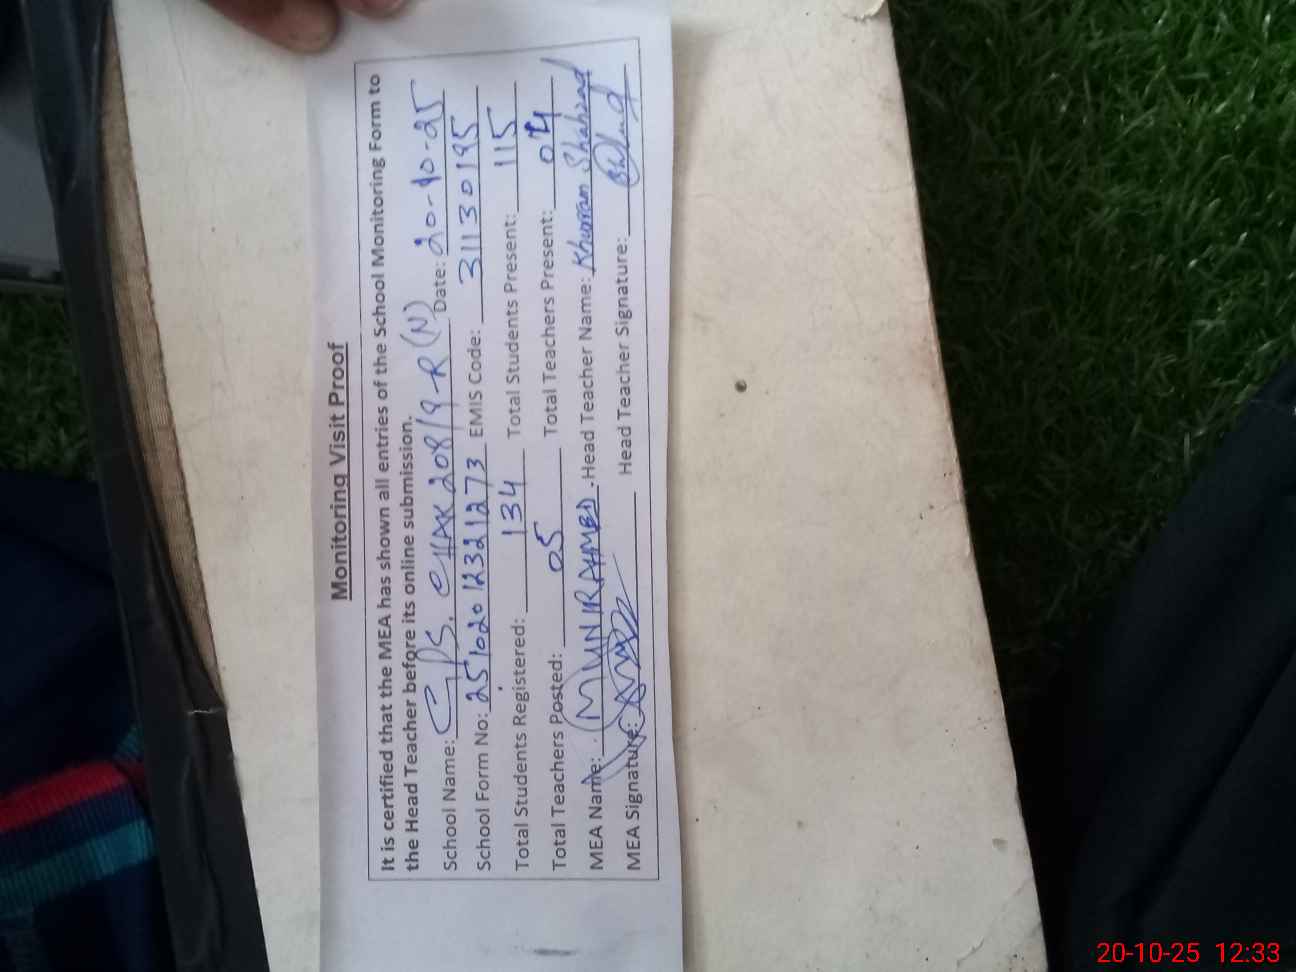 Monitoring Visit Proof
It is certified that the MEA has shown all entries of the School Monitoring Form to
the Head Teacher before its online submission.
School Name: GPS. CHAK 208/9-R (N) Date: 20-10-25
School Form No: 25102012321273 EMIS Code: 31130195
Total Students Registered: 134 Total Students Present: 115
Total Teachers Posted: 05 Total Teachers Present: 04
MEA Name: M UNIR AHMED Head Teacher Name: Khurram Shahzad
MEA Signature: Head Teacher Signature:
20-10-25 12:33